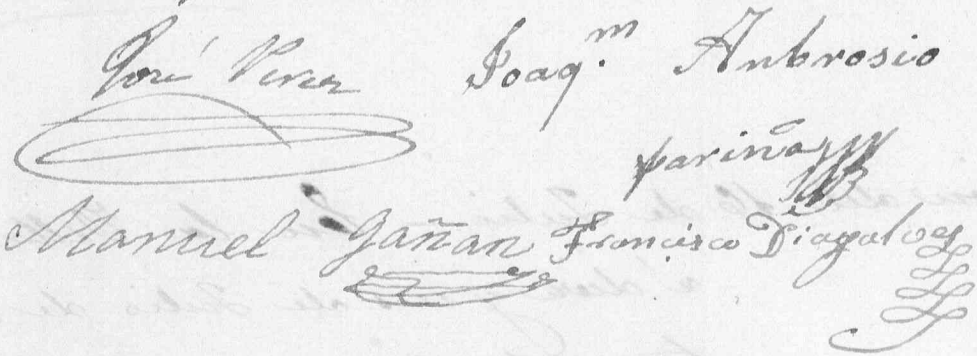 José Perez Joaq.m Ambrosio
pariña
Manuel Gañan Francisco Diagalves